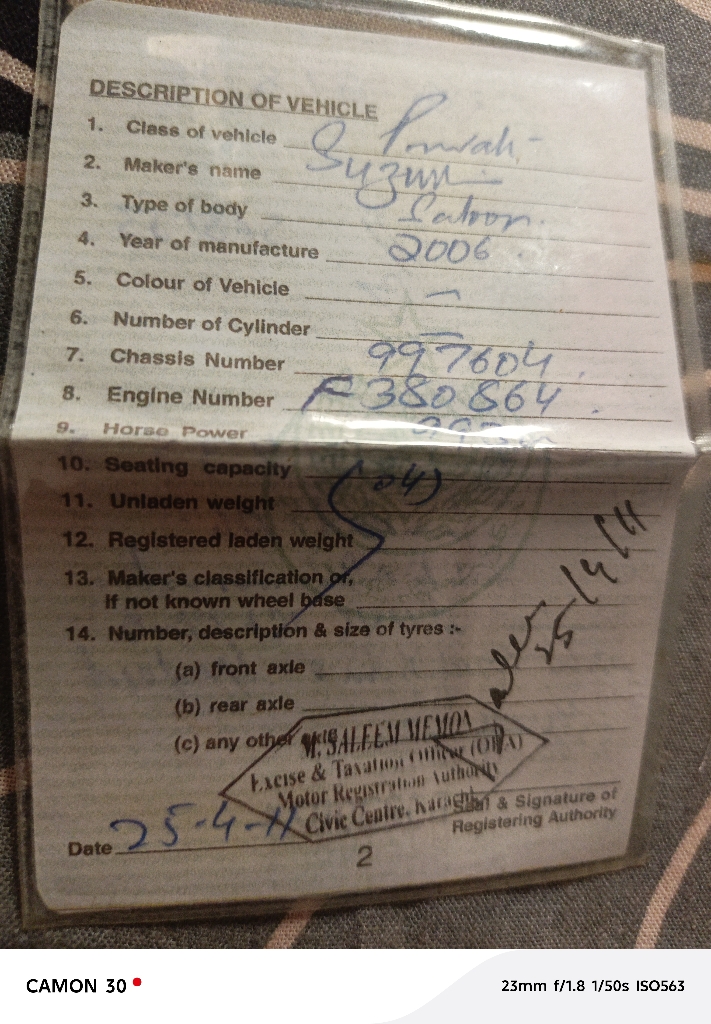 DESCRIPTION OF VEHICLE
1. Class of vehicle
2. Maker's name Suzuki
3. Type of body Saloon.
4. Year of manufacture 2006.
5. Colour of Vehicle —
6. Number of Cylinder —
7. Chassis Number 997604.
8. Engine Number F380864.
9. Horse Power
10. Seating capacity (04)
11. Unladen weight
12. Registered laden weight
13. Maker's classification or,
if not known wheel base
14. Number, description & size of tyres :-
(a) front axle
(b) rear axle
(c) any other axle
25/4/11
M. SALEEM MEMON
Excise & Taxation Officer
Motor Registration Authority
Civic Centre, Karachi
& Signature of
Registering Authority
Date 25-4-11
2
CAMON 30
23mm f/1.8 1/50s ISO563